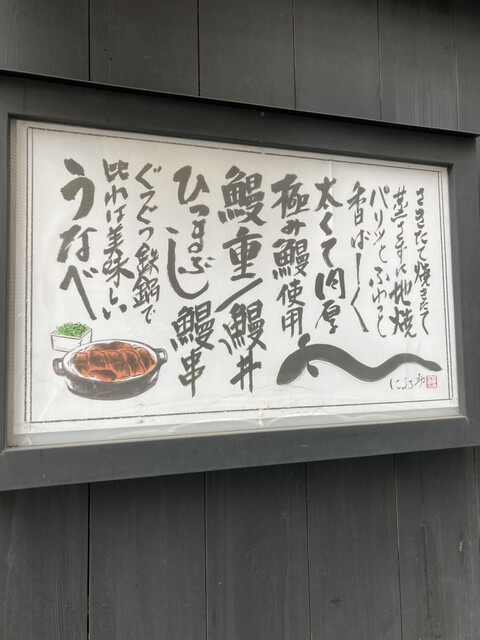 さきたて焼きたて
蒸さずに地焼
パリッとふわっ
香ばしく
太くて肉厚
極み鰻使用
鰻重/鰻丼
ひつまぶし 鰻串
ぐつぐつ鉄鍋で
比れは美味しい
うなべ